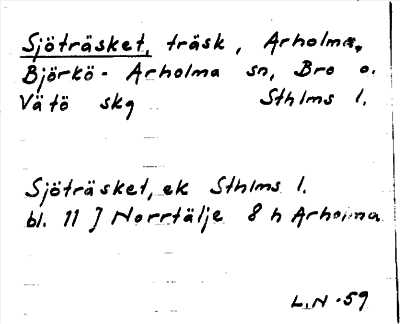 Sjöträsket, träsk, Arholma,
Björkö-Arholma sn, Bro o.
Vätö skg Sthlms l.
Sjöträsket, ek Sthlms l.
bl. 11 J Norrtälje 8 h Arholma
L.N-59